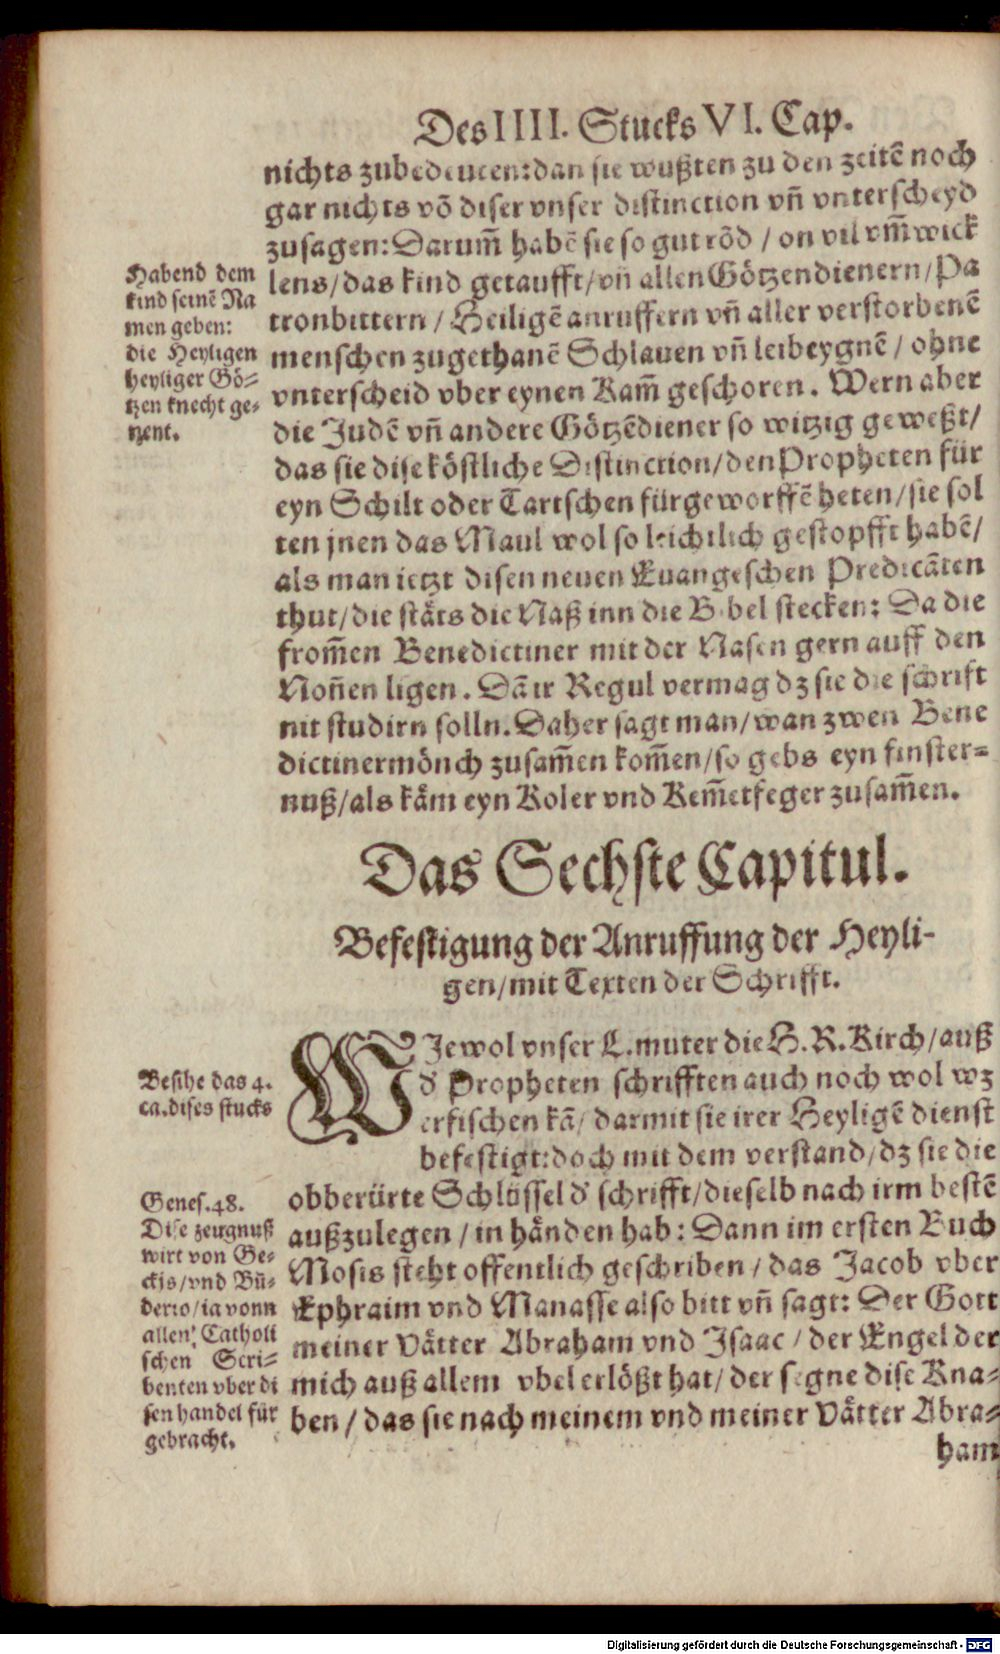 Des IIII. Stucks VI. Cap.
nichts zubedeuten: dan sie wußten zu den zeitē noch
gar nichts vō diser vnser distinction vñ vnterscheyd
zusagen: Darum̃ habē sie so gut rōd / on vil vm̃wick
lens / das kind getaufft / vñ allen Götzendienern / Pa
tronbittern / Heiligē anruffern vñ aller verstorbenē
menschen zugethanē Schlauen vñ leibeygnē / ohne
vnterscheid vber eynen Kam̃ geschoren. Wern aber
die Judē vñ andere Götzēdiener so witzig geweßt /
das sie dise köstliche Distinction / den Propheten für
eyn Schilt oder Tartschen fürgeworffē heten / sie sol
ten jnen das Maul wol so leichtlich gestopfft habē /
als man ietzt disen neuen Euangeschen Predicāten
thut / die stäts die Naß inn die Bibel stecken: Da die
from̃en Benedictiner mit der Nasen gern auff den
Noñen ligen. Dā ir Regul vermag dz sie die schrift
nit studirn solln. Daher sagt man / wan zwen Bene
dictinermönch zusam̃en kom̃en / so gebs eyn finster=
nuß / als käm eyn Koler vnd Kem̃etfeger zusam̃en.
Habend dem
kind seinē Na
men geben:
die Heyligen
heyliger Gö=
tzen knecht ge=
nent.
Das Sechste Capitul.
Befestigung der Anruffung der Heyli-
gen / mit Texten der Schrifft.
WJewol vnser L. muter die H. R. Kirch / auß
d' Propheten schrifften auch noch wol wz
erfischen kā / darmit sie irer Heyligē dienst
befestigt: doch mit dem verstand / dz sie die
obberürte Schlüssel d' schrifft / dieselb nach irm bestē
außzulegen / in händen hab: Dann im ersten Buch
Mosis steht offentlich geschriben / das Jacob vber
Ephraim vnd Manasse also bitt vñ sagt: Der Gott
meiner Vätter Abraham vnd Isaac / der Engel der
mich auß allem vbel erlößt hat / der segne dise Kna=
ben / das sie nach meinem vnd meiner Vätter Abra=
ham
Besihe das 4.
ca. dises stucks
Genes. 48.
Dise zeugnuß
wirt von Ge=
ckis / vnd Bü=
derio / ia vonn
allen Catholi
schen Scri=
benten vber di
sen handel für
gebracht.
Digitalisierung gefördert durch die Deutsche Forschungsgemeinschaft - DFG